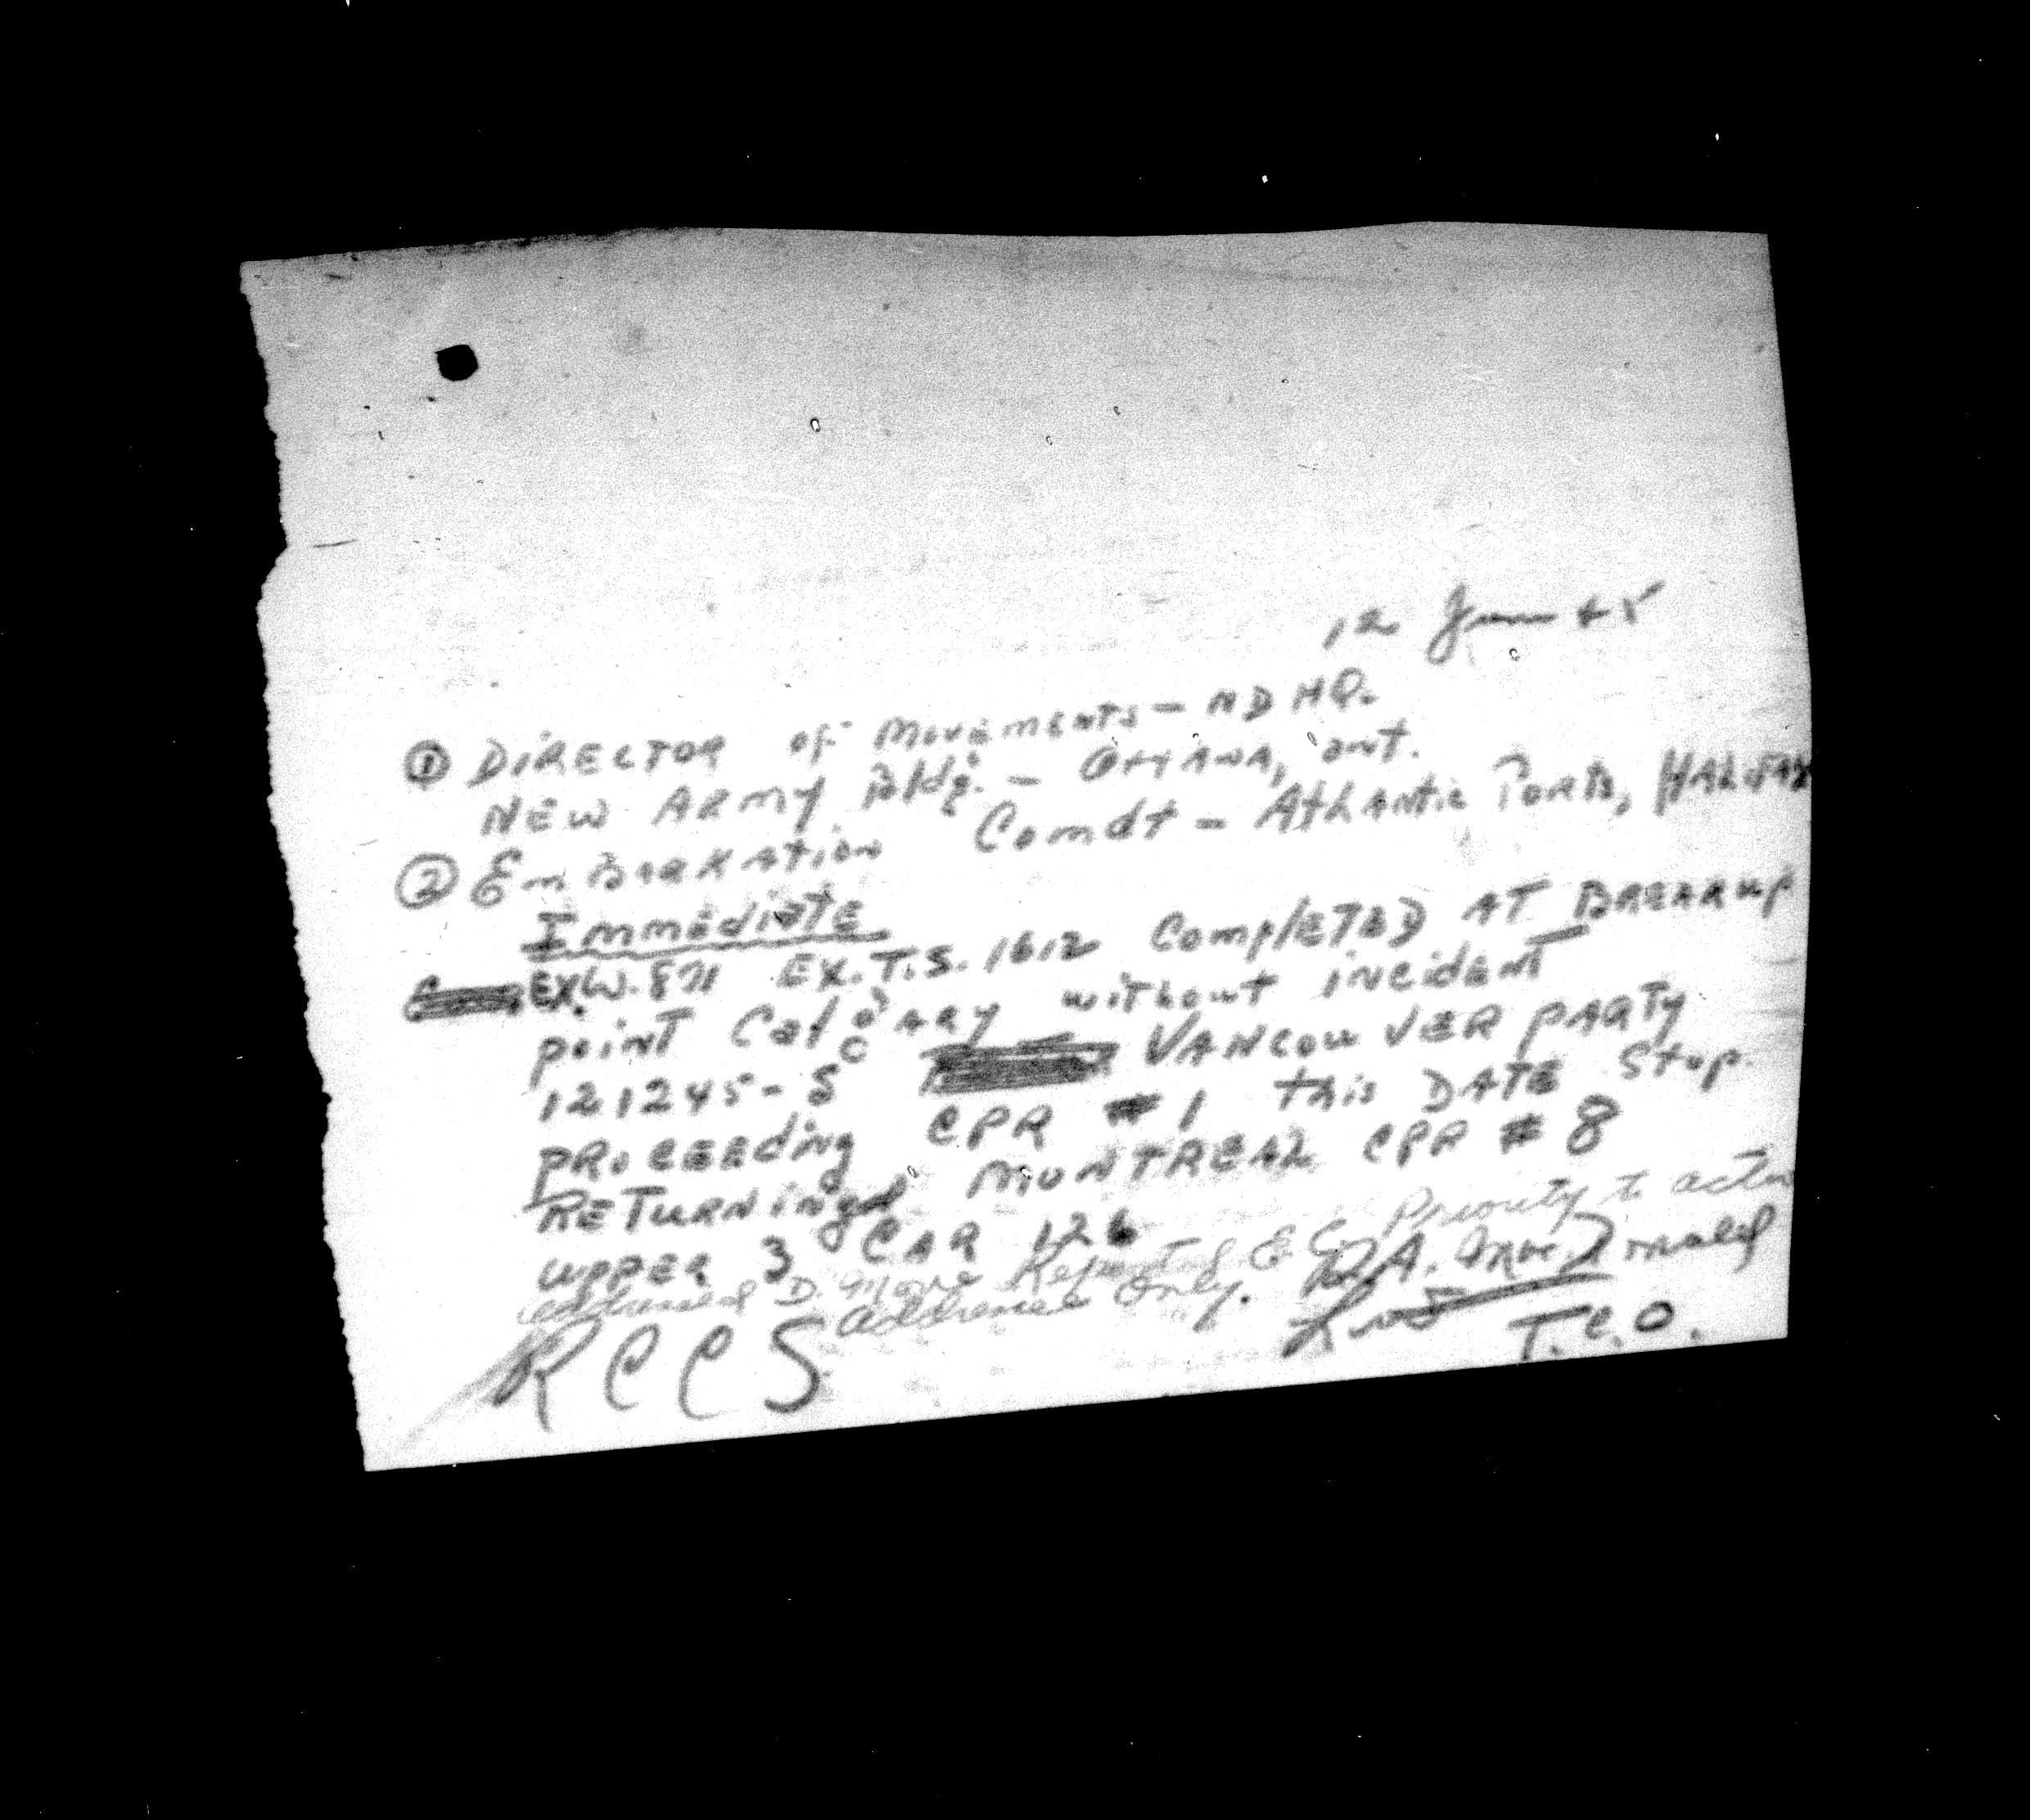 12 June 45
① DIRECTOR of Movements - NDHQ.
NEW ARMY Bldg. - Ottawa, ont.
② Embarkation Comdt - Atlantic Ports, HALIFAX
Immediate
EX.W. 871 EX.T.S. 1612 COMPLETED AT BREAKUP
point Calgary without incident
121245-S VANCOUVER PARTY
PROCEEDING CPR #1 this DATE Stop.
RETURNING MONTREAL CPR #8
UPPER 3 CAR 126
addressed D. Move Repeated E C. Priority to action
addressee only. MacDonald
T.C.O.
RCCS